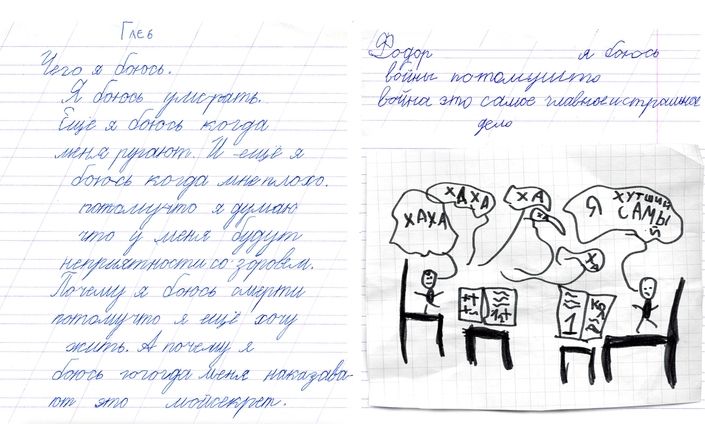 Глеб
Чего я боюсь.
Я боюсь умерать.
Ещё я боюсь когда
меня ругают. И ещё я
боюсь когда мне плохо.
потомучто я думаю
что у меня будут
неприятности со здоровем.
Почему я боюсь смерти
потомучто я ещё хочу
жить. А почему я
боюсь когда меня наказава-
ют это мойсекрет.
Фодор я боюсь
войны потомушто
война это самое главное и страшное
дело
ХАХА
ХАХА
ХА
Я ХУТШИЙ
САМЫ
Й
1